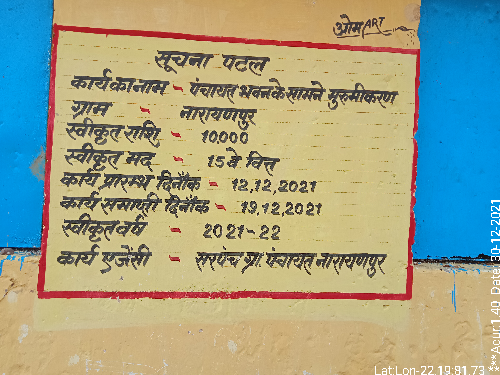 ओम ART
सूचना पटल
कार्य का नाम - पंचायत भवन के सामने मुरुमीकरण
ग्राम - नारायणपुर
स्वीकृत राशि - 10,000
स्वीकृत मद - 15 वे वित्त
कार्य प्रारम्भ दिनाँक - 12,12,2021
कार्य समाप्ती दिनाँक - 19,12,2021
स्वीकृत वर्ष - 2021-22
कार्य एजेंसी - सरपंच ग्रा. पंचायत नारायणपुर
Lat:Lon-22.19:81.73
***Acur:1.40 Date:30-12-2021